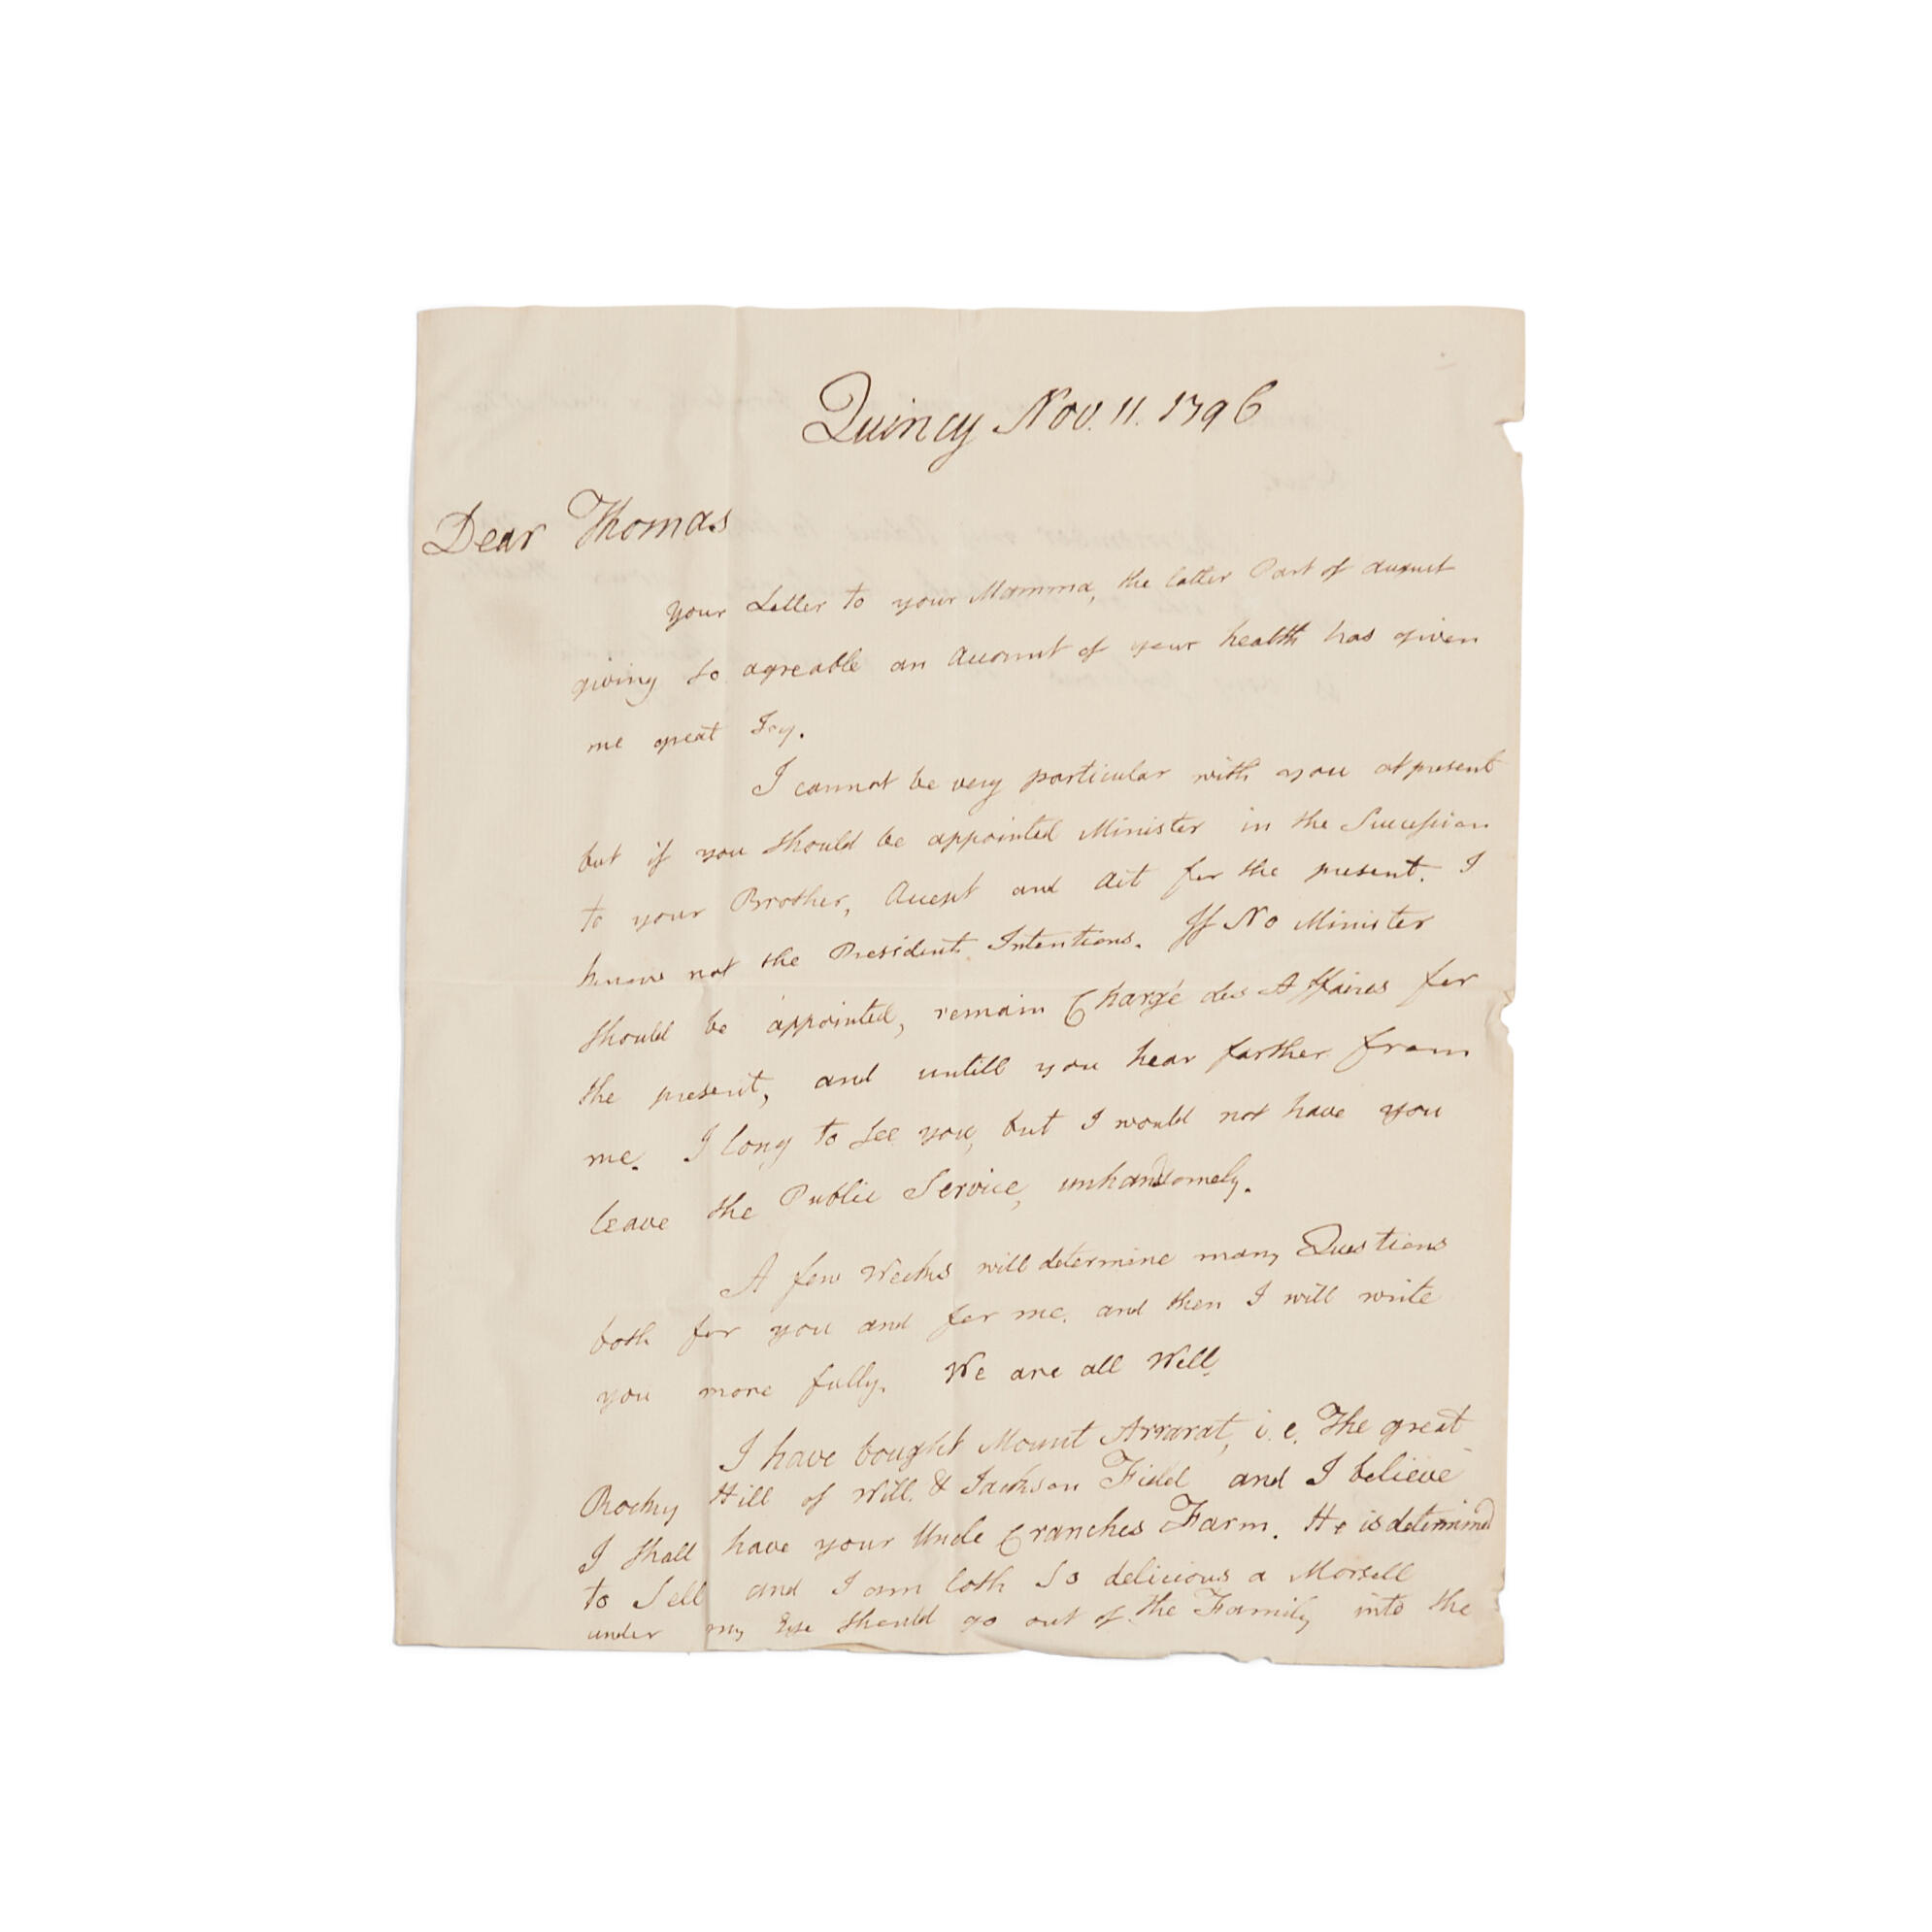 Quincy Nov. 11. 1796
Dear Thomas
your Letter to your Mamma, the latter Part of august
giving so agreable an Account of your health has given
me great Joy.
I cannot be very particular with you at present
but if you should be appointed Minister in the Succession
to your Brother, Accept and Act for the present. I
know not the Presidents Intentions. If No Minister
should be appointed, remain Chargé des Affaires for
the present, and untill you hear farther from
me. I long to see you, but I would not have you
leave the Public Service, unhandsomely.
A few Weeks will determine many Questions
both for you and for me. and then I will write
you more fully. We are all Well.
I have bought Mount Arrarat, i.e. The great
Rocky Hill of Will. & Jackson Field and I believe
I shall have your Uncle Cranches Farm. He is determined
to Sell and I am loth So delicious a Morsell
under my Eye should go out of the Family into the